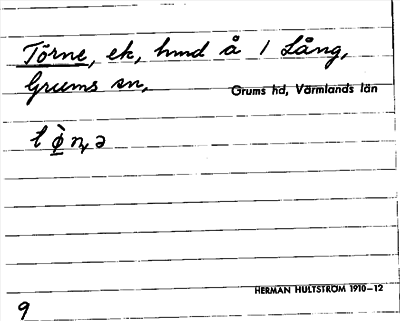 Törne, ek, hmd å 1 Lång,
Grums sn,
Grums hd, Värmlands län
HERMAN HULTSTRÖM 1910–12
9